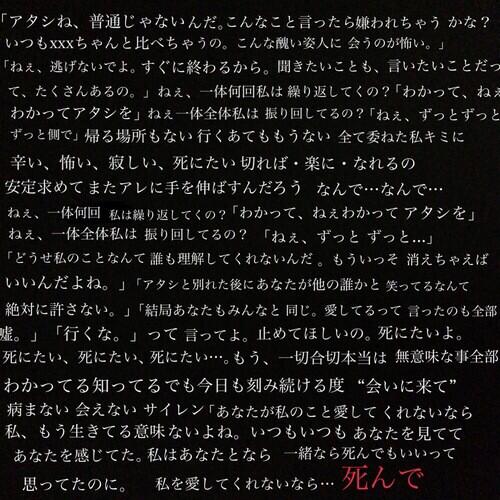 「アタシね、普通じゃないんだ。こんなこと言ったら嫌われちゃう かな?
いつもxxxちゃんと比べちゃうの。こんな醜い姿人に 会うのが怖い。」
「ねぇ、逃げないでよ。すぐに終わるから。聞きたいことも、言いたいことだっ
て、たくさんあるの。」ねぇ、一体何回私は 繰り返してくの?「わかって、ねぇ
わかってアタシを」ねぇ一体全体私は 振り回してるの?「ねぇ、ずっとずっと
ずっと側で」帰る場所もない 行くあてももうない 全て委ねた私キミに
辛い、怖い、寂しい、死にたい 切れば・楽に・なれるの
安定求めて またアレに手を伸ばすんだろう なんで…なんで…
ねぇ、一体何回 私は繰り返してくの?「わかって、ねぇわかって アタシを」
ねぇ、一体全体私は 振り回してるの? 「ねぇ、ずっと ずっと…」
「どうせ私のことなんて 誰も理解してくれないんだ 。もういっそ 消えちゃえば
いいんだよね。」「アタシと別れた後にあなたが他の誰かと 笑ってるなんて
絶対に許さない。」「結局あなたもみんなと 同じ。愛してるって 言ったのも全部
嘘。」「行くな。」って 言ってよ。止めてほしいの。死にたいよ。
死にたい、死にたい、死にたい…。もう、一切合切本当は 無意味な事全部
わかってる知ってるでも今日も刻み続ける度 “会いに来て”
病まない 会えない サイレン「あなたが私のこと愛して くれないなら
私、もう生きてる意味ないよね。いつもいつも あなたを見てて
あなたを感じてた。私はあなたとなら 一緒なら死んでもいいって
思ってたのに。 私を愛してくれないなら… 死んで